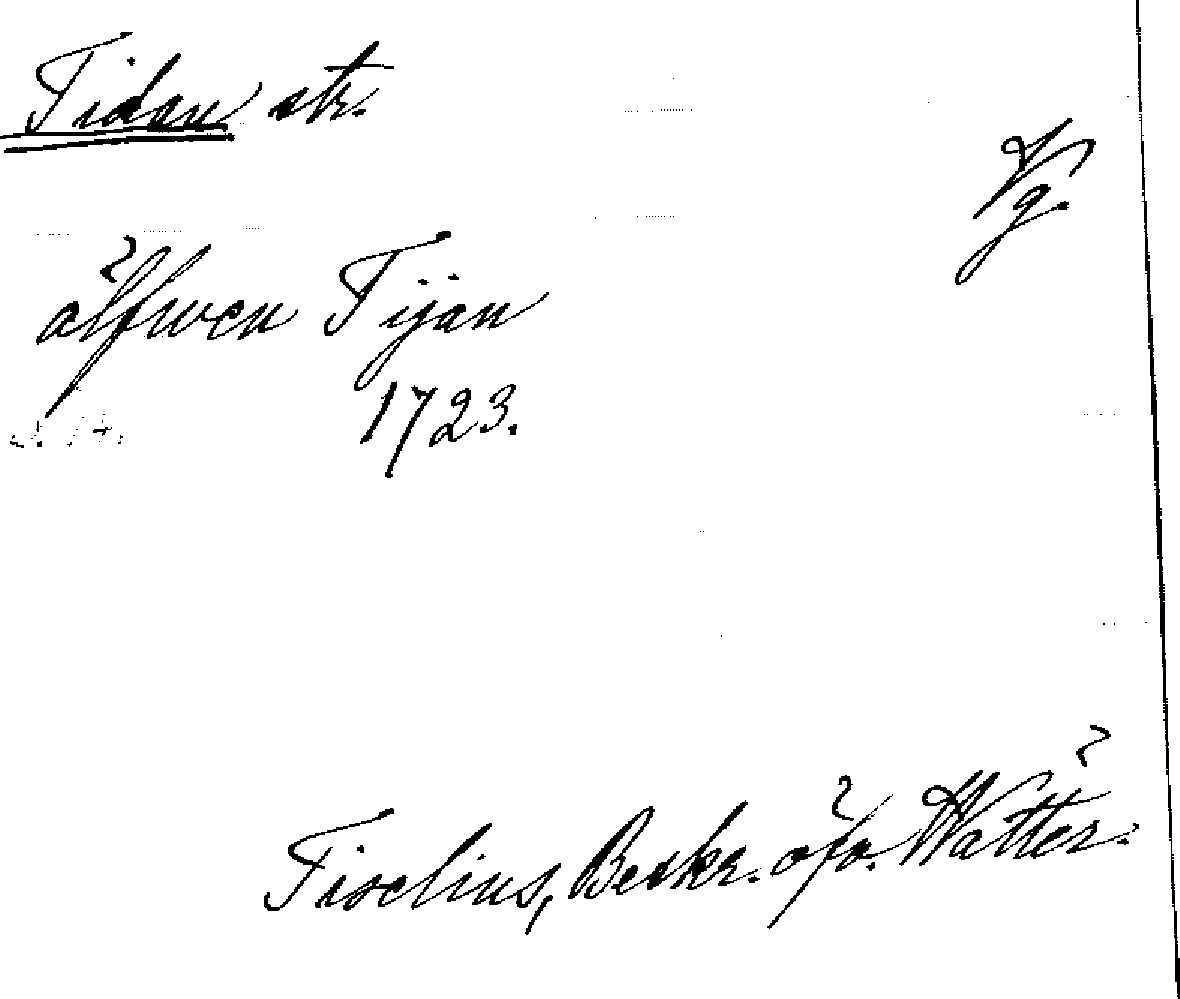 Tidan str.
Vg.
älfwen Tijan
1723.
Tiselius, Beskr. öfv. Wätter.